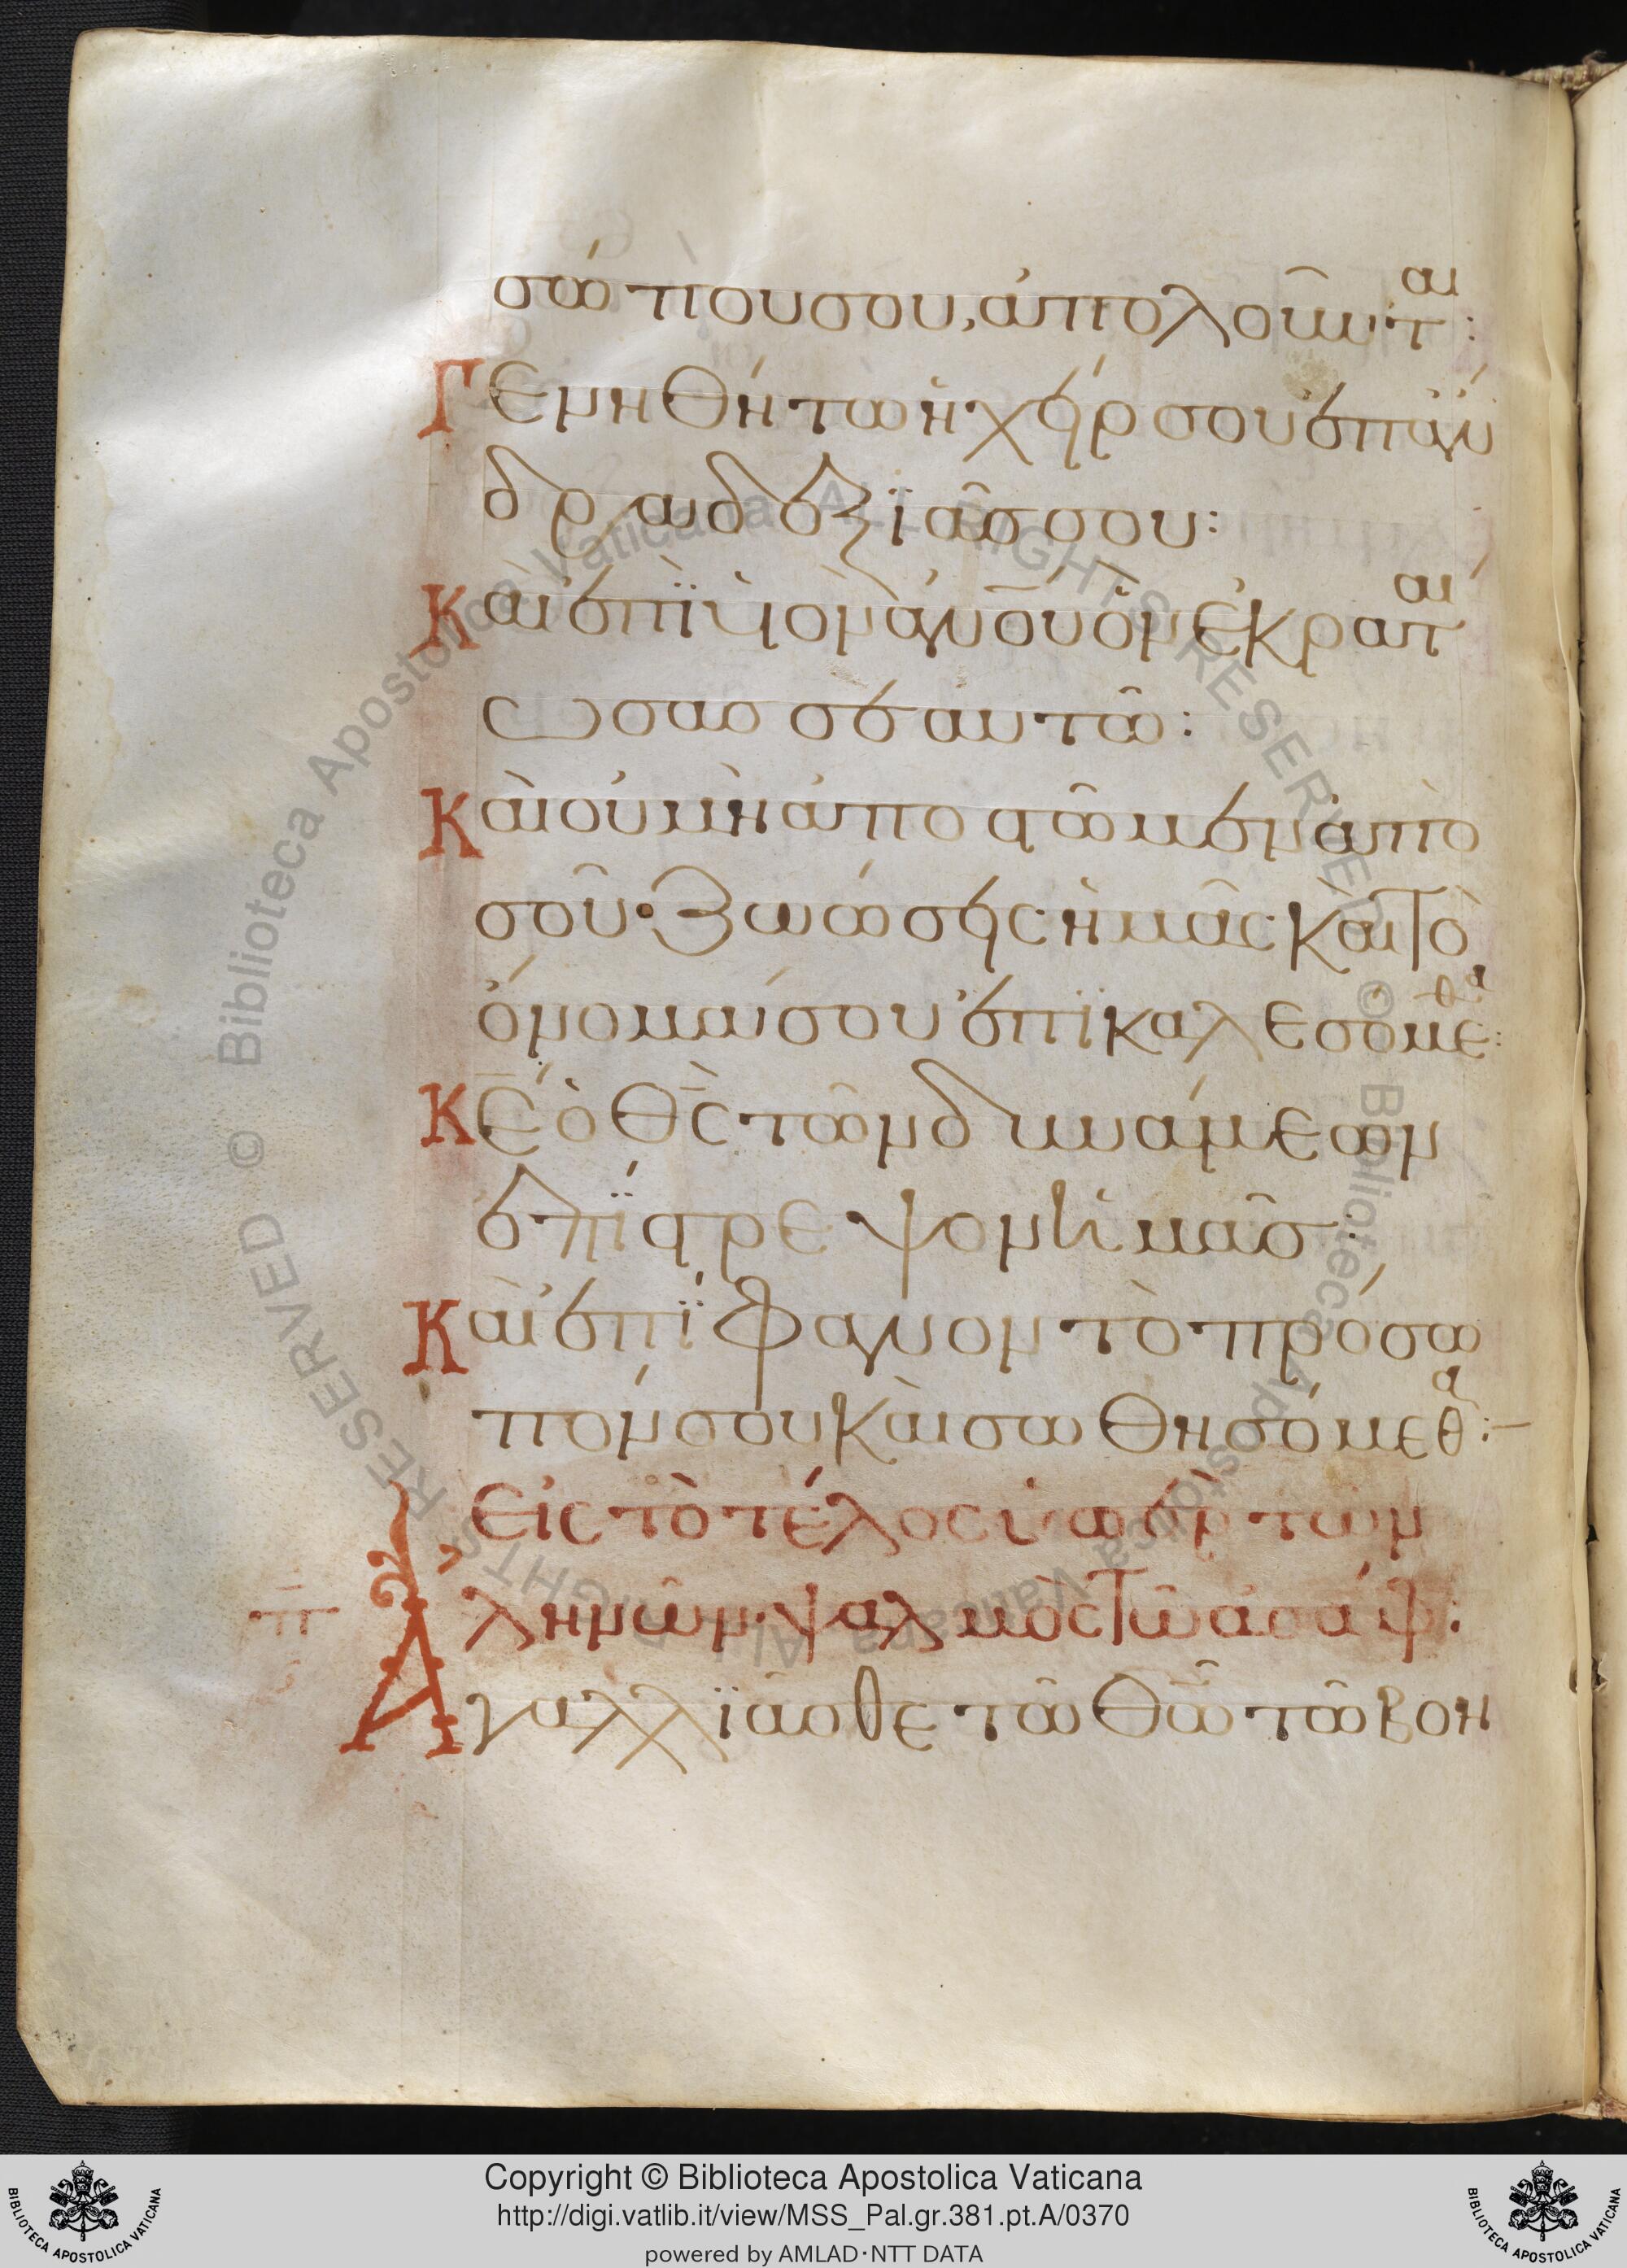 σώπου σου, ἀπολοῦνται:
Γενηθήτω ἡ χείρ σου ἐπ' ἄν
δρα δεξιᾶς σου:
Καὶ ἐπὶ υἱὸν ἀνου ὃν ἐκραταί
ωσας σεαυτῶ:
Καὶ οὐ μὴ ἀποστῶμεν ἀπὸ
σοῦ· ζωώσεις ἡμᾶς· καὶ τὸ
ὄνομά σου ἐπικαλεσόμεθα:
Κε ὁ θς τῶν δυνάμεων
ἐπίστρεψον ἡμᾶς:
Καὶ ἐπίφανον τὸ πρόσω
πόν σου καὶ σωθησόμεθα:-
Εἰς τὸ τέλος ὑπὲρ τῶν
π
λημῶν· ψαλμὸς τῶ ἀσάφ:
Ἀγαλλιᾶσθε τῶ θῶ τῶ βοη
Copyright © Biblioteca Apostolica Vaticana
http://digi.vatlib.it/view/MSS_Pal.gr.381.pt.A/0370
powered by AMLAD·NTT DATA
BIBLIOTECA APOSTOLICA VATICANA
BIBLIOTECA APOSTOLICA VATICANA
© Biblioteca Apostolica Vaticana ALL RIGHTS RESERVED © Biblioteca Apostolica Vaticana ALL RIGHTS RESERVED